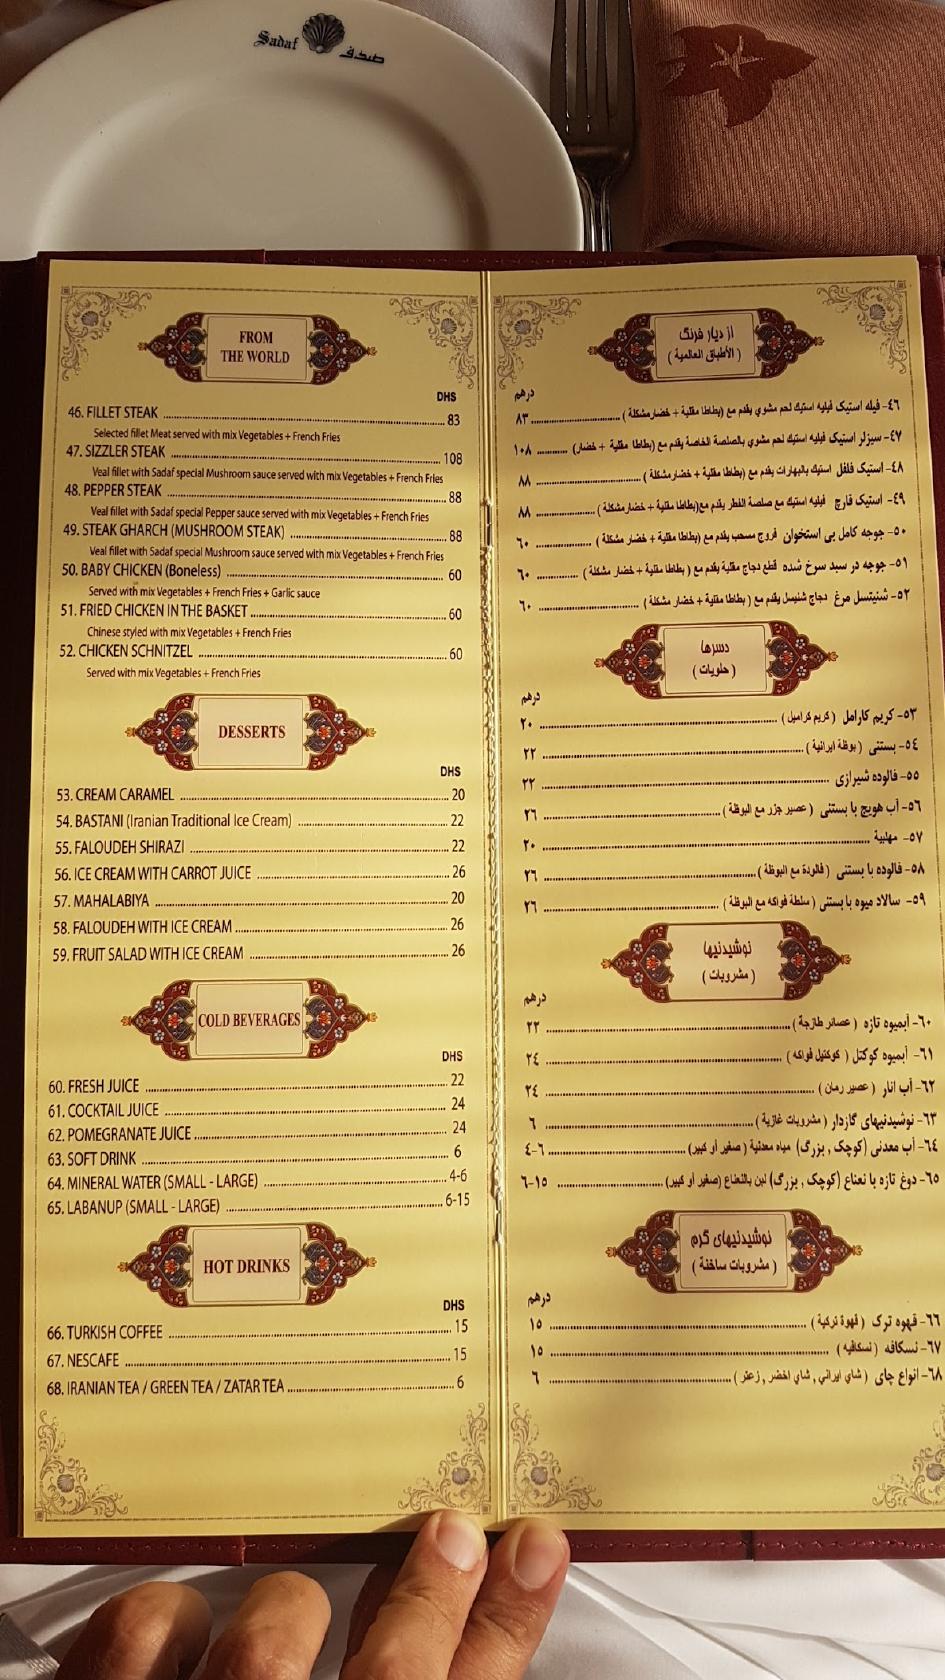 Sadaf
صدف
FROM
THE WORLD
DHS
46. FILLET STEAK 83
Selected fillet Meat served with mix Vegetables + French Fries
47. SIZZLER STEAK 108
Veal fillet with Sadaf special Mushroom sauce served with mix Vegetables + French Fries
48. PEPPER STEAK 88
Veal fillet with Sadaf special Pepper sauce served with mix Vegetables + French Fries
49. STEAK GHARCH (MUSHROOM STEAK) 88
Veal fillet with Sadaf special Mushroom sauce served with mix Vegetables + French Fries
50. BABY CHICKEN (Boneless) 60
Served with mix Vegetables + French Fries + Garlic sauce
51. FRIED CHICKEN IN THE BASKET 60
Chinese styled with mix Vegetables + French Fries
52. CHICKEN SCHNITZEL 60
Served with mix Vegetables + French Fries
DESSERTS
DHS
53. CREAM CARAMEL 20
54. BASTANI (Iranian Traditional Ice Cream) 22
55. FALOUDEH SHIRAZI 22
56. ICE CREAM WITH CARROT JUICE 26
57. MAHALABIYA 20
58. FALOUDEH WITH ICE CREAM 26
59. FRUIT SALAD WITH ICE CREAM 26
COLD BEVERAGES
DHS
60. FRESH JUICE 22
61. COCKTAIL JUICE 24
62. POMEGRANATE JUICE 24
63. SOFT DRINK 6
64. MINERAL WATER (SMALL - LARGE) 4-6
65. LABANUP (SMALL - LARGE) 6-15
HOT DRINKS
DHS
66. TURKISH COFFEE 15
67. NESCAFE 15
68. IRANIAN TEA / GREEN TEA / ZATAR TEA 6
از دیار فرنگ
( الأطباق العالمية )
درهم
٤٦- فیله استیک فيليه استيك لحم مشوي يقدم مع (بطاطا مقلية + خضارمشكلة ) ٨٣
٤٧- سیزلر استیک فيليه استيك لحم مشوي بالصلصة الخاصة يقدم مع (بطاطا مقلية + خضار) ١٠٨
٤٨- استیک فلفل استيك بالبهارات يقدم مع (بطاطا مقلية + خضارمشكلة ) ٨٨
٤٩- استیک قارچ فيليه استيك مع صلصة الفطر يقدم مع(بطاطا مقلية + خضارمشكلة ) ٨٨
٥٠- جوجه کامل بی استخوان فروج مسحب يقدم مع (بطاطا مقلية + خضار مشكلة ) ٦٠
٥١- جوجه در سبد سرخ شده قطع دجاج مقلية يقدم مع ( بطاطا مقلية + خضار مشكلة ) ٦٠
٥٢- شنیتسل مرغ دجاج شنيسل يقدم مع ( بطاطا مقلية + خضار مشكلة ) ٦٠
دسرها
( حلويات )
درهم
٥٣- کریم کارامل ( كريم كراميل ) ٢٠
٥٤- بستنی ( بوظة ايرانية ) ٢٢
٥٥- فالوده شیرازی ٢٢
٥٦- آب هویج با بستنی ( عصير جزر مع البوظة ) ٢٦
٥٧- مهلبية ٢٠
٥٨- فالوده با بستنی ( فالودة مع البوظة ) ٢٦
٥٩- سالاد میوه با بستنی ( سلطة فواكه مع البوظة ) ٢٦
نوشیدنیها
( مشروبات )
درهم
٦٠- آبمیوه تازه ( عصائر طازجة ) ٢٢
٦١- آبمیوه کوکتل ( كوكتيل فواكه ) ٢٤
٦٢- آب انار ( عصير رمان ) ٢٤
٦٣- نوشیدنیهای گازدار ( مشروبات غازية ) ٦
٦٤- آب معدنی (کوچک , بزرگ) مياه معدنية ( صغير أو كبير) ٤-٦
٦٥- دوغ تازه با نعناع (کوچک , بزرگ) لبن بالنعناع (صغير أو كبير) ٦-١٥
نوشیدنیهای گرم
( مشروبات ساخنة )
درهم
٦٦- قهوه ترک ( قهوة تركية ) ١٥
٦٧- نسکافه ( نسكافيه ) ١٥
٦٨- انواع چای ( شاي ايراني , شاي اخضر , زعتر ) ٦